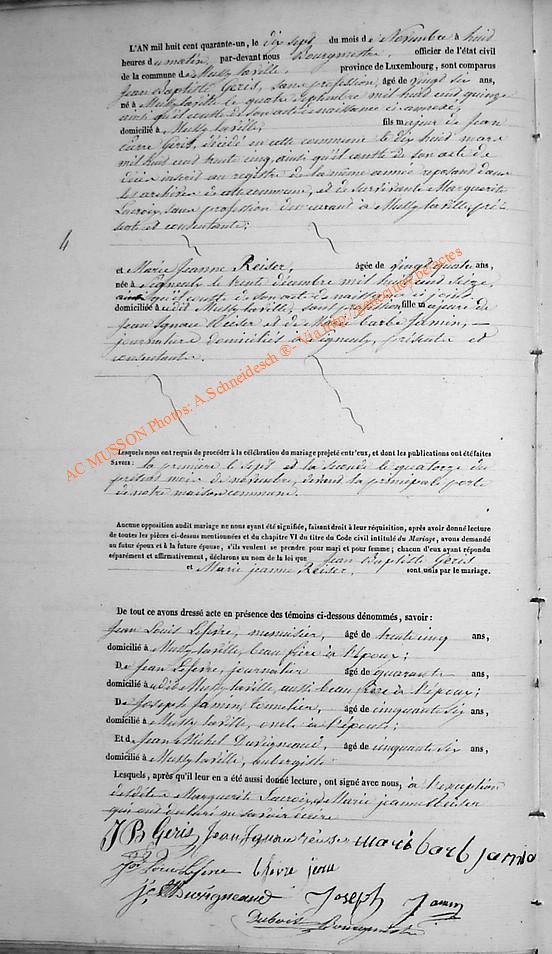 L'AN mil huit cent quarante-un, le dix sept du mois de Novembre à huit
heures du matin, par-devant nous Bourgmestre officier de l'état civil
de la commune de Mussy la ville, province de Luxembourg, sont comparus
Jean Baptiste Geris, sans profession, âgé de vingt six ans,
né à Mussy la ville le quatre Septembre mil huit cent quinze
ainsi qu'il conste de son acte de naissance ci annexé,
domicilié à Mussy la ville, fils majeur de Jean
Geris, décédé en cette commune le dix huit mars
mil huit cent trente cinq, ainsi qu'il conste de son acte de
décès inscrit au registre de la même année reposant dans
les archives de cette commune, et de survivante Marguerite
Lacroix, sans profession demeurant à Mussy la ville, pré
sente et consentante;
4
et Marie Jeanne Reiser, âgée de vingt quatre ans,
née à Signeulx le trente décembre mil huit cent seize,
ainsi qu'il conste de son acte de naissance ci joint
domiciliée à Mussy la ville, sans profession, fille majeure de
Jean Ignace Reiser et de Marie barbe Jamin,
journaliers domiciliés à Signeulx, présents et
consentants.
AC MUSSON Photos: A.Schneidesch ®- Via http://
Lesquels nous ont requis de procéder à la célébration du mariage projeté entr'eux, et dont les publications ont été faites
Savoir: la première le sept et la seconde le quatorze du
présent mois de novembre, devant la principale porte
de notre maison commune.
Aucune opposition audit mariage ne nous ayant été signifiée, faisant droit à leur réquisition, après avoir donné lecture
de toutes les pièces ci-dessus mentionnées et du chapitre VI du titre du Code civil intitulé du Mariage, avons demandé
au futur époux et à la future épouse, s'ils veulent se prendre pour mari et pour femme; chacun d'eux ayant répondu
séparément et affirmativement, déclarons au nom de la loi que Jean Baptiste Geris
et Marie jeanne Reiser, sont unis par le mariage.
De tout ce avons dressé acte en présence des témoins ci-dessous dénommés, savoir:
Jean Louis Lefevre, menuisier, âgé de trente cinq ans,
domicilié à Mussy la ville, beau frère à l'époux;
De Jean Lefevre, journalier âgé de quarante ans,
domicilié à Mussy la ville, aussi beau frère à l'époux;
De Joseph Jamin, âgé de cinquante six ans,
domicilié à Mussy la ville, oncle à l'épouse;
Et de Jean Michel Duvigneaud, âgé de cinquante six ans,
domicilié à Mussy la ville, aubergiste
Lesquels, après qu'il leur en a été aussi donné lecture, ont signé avec nous, à l'exception
Marguerite Lacroix, Marie jeanne Reiser
qui ont déclaré ne savoir écrire
J B Geris Jean Ignace reiser marie barb jamin
Louis Lefevre
Duvigneaud Joseph Jamin
Dubois Bourgmestre